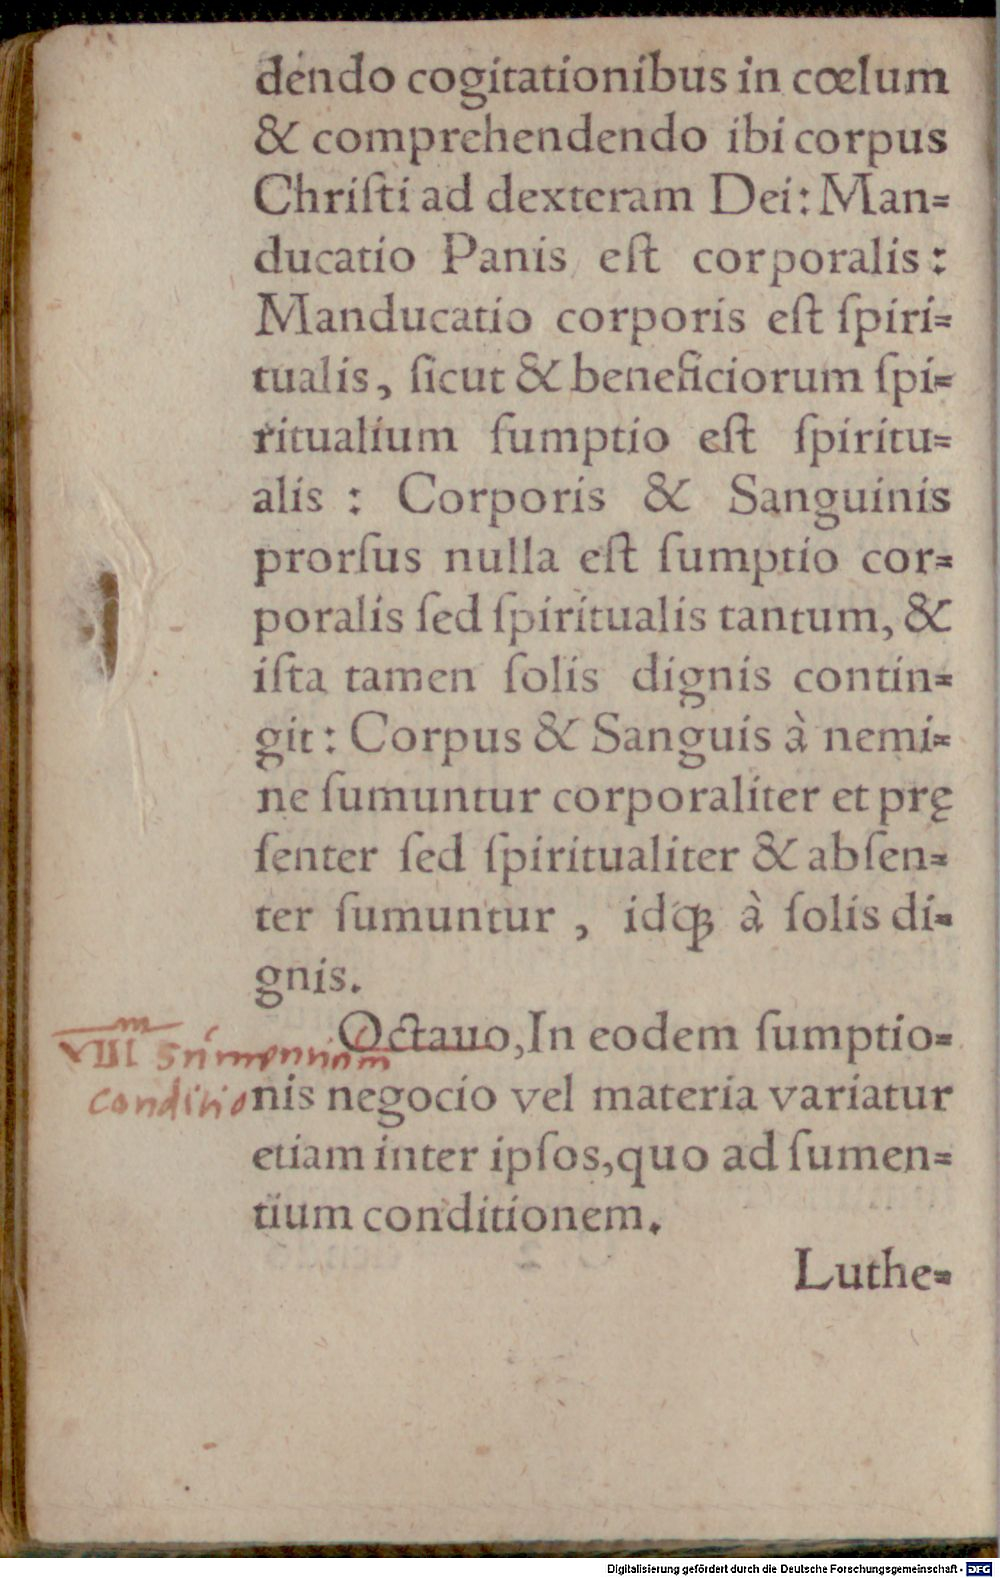 dendo cogitationibus in cœlum
& comprehendendo ibi corpus
Chriſti ad dexteram Dei: Man=
ducatio Panis eſt corporalis:
Manducatio corporis eſt ſpiri=
tualis, ſicut & beneficiorum ſpi=
ritualium ſumptio eſt ſpiritu=
alis : Corporis & Sanguinis
prorſus nulla eſt ſumptio cor=
poralis ſed ſpiritualis tantum, &
iſta tamen ſolis dignis contin=
git: Corpus & Sanguis à nemi=
ne ſumuntur corporaliter et prę
ſenter ſed ſpiritualiter & abſen=
ter ſumuntur , idq́ꝫ à ſolis di=
gnis.
Octauo, In eodem ſumptio=
VIII
conditio
nis negocio vel materia variatur
etiam inter ipſos, quo ad ſumen=
tium conditionem.
Luthe=
Digitalisierung gefördert durch die Deutsche Forschungsgemeinschaft - DFG